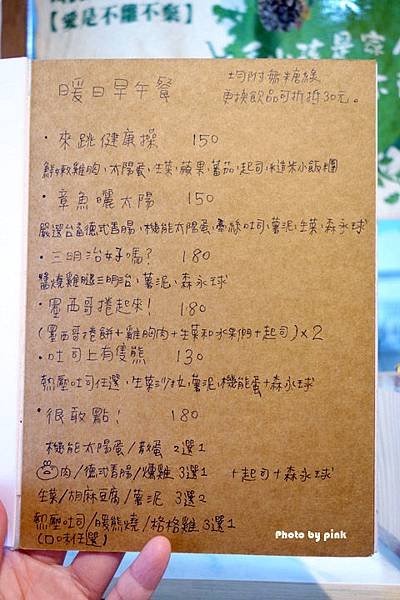 【愛是不離不棄】
暖日早午餐
均附 糖線
更換飲品可折抵30元。
・來跳健康操 150
鮮嫩雞胸、太陽蛋、生菜、蘋果、蕃茄、起司、米造米小飯糰
・章魚曬太陽 150
嚴選 德式香腸、機能太陽蛋、 絲吐司、薯泥、生菜、森永球
・三明治好嗎? 180
醬燒雞腿三明治、薯泥、森永球
・墨西哥捲起來! 180
(墨西哥捲餅+雞胸肉+生菜和水果們+起司)×2
・吐司上有隻熊 130
熱壓吐司任選、生菜沙拉、薯泥、機能蛋+森永球
・很敢點! 180
機能太陽蛋/軟蛋 2選1
肉/德式香腸/燻雞 3選1 +起司+森永球
生菜/胡麻豆腐/薯泥 3選2
熱壓吐司/暖熊燒/格格雞 3選1
(口味任選)
Photo by pink